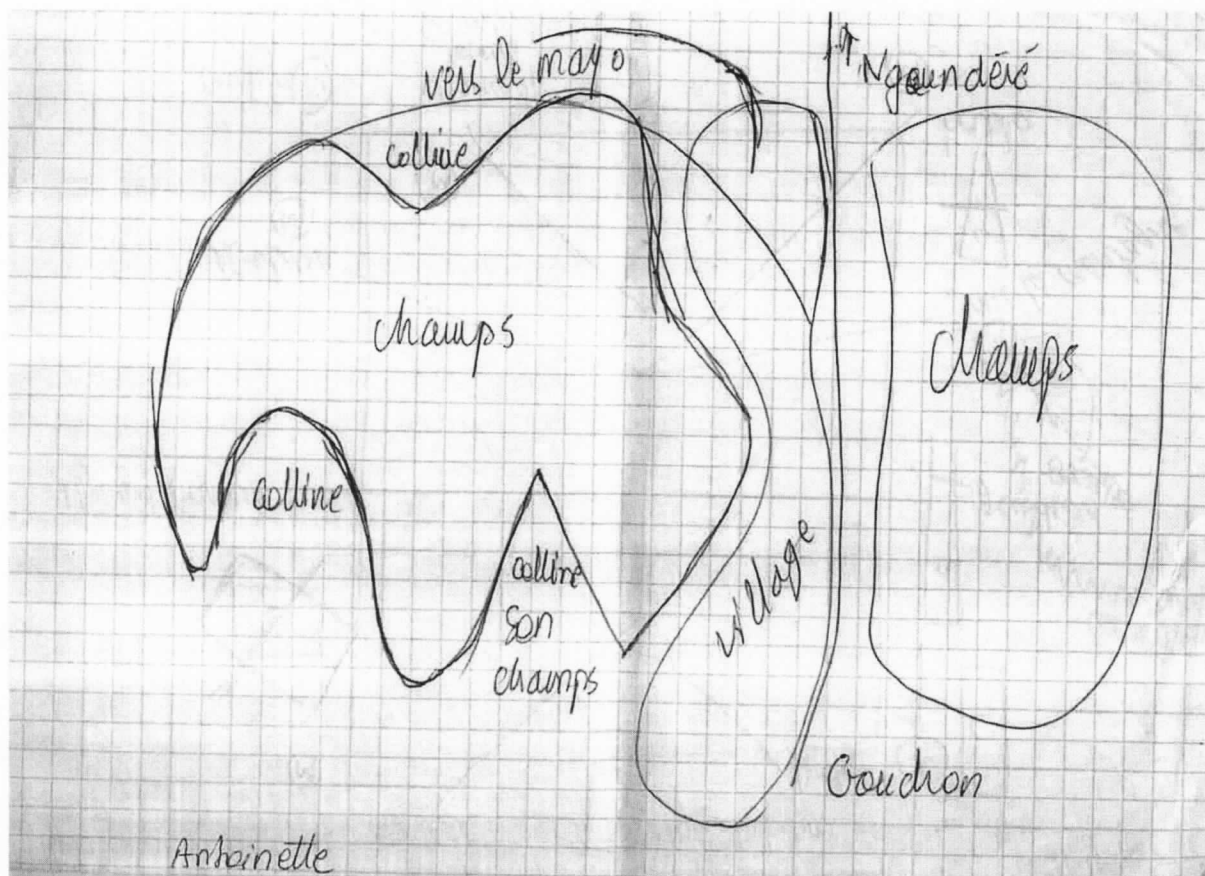 vers le mayo
Ngoundéré
colline
champs
champs
colline
colline
son
champs
village
Goudron
Antoinette